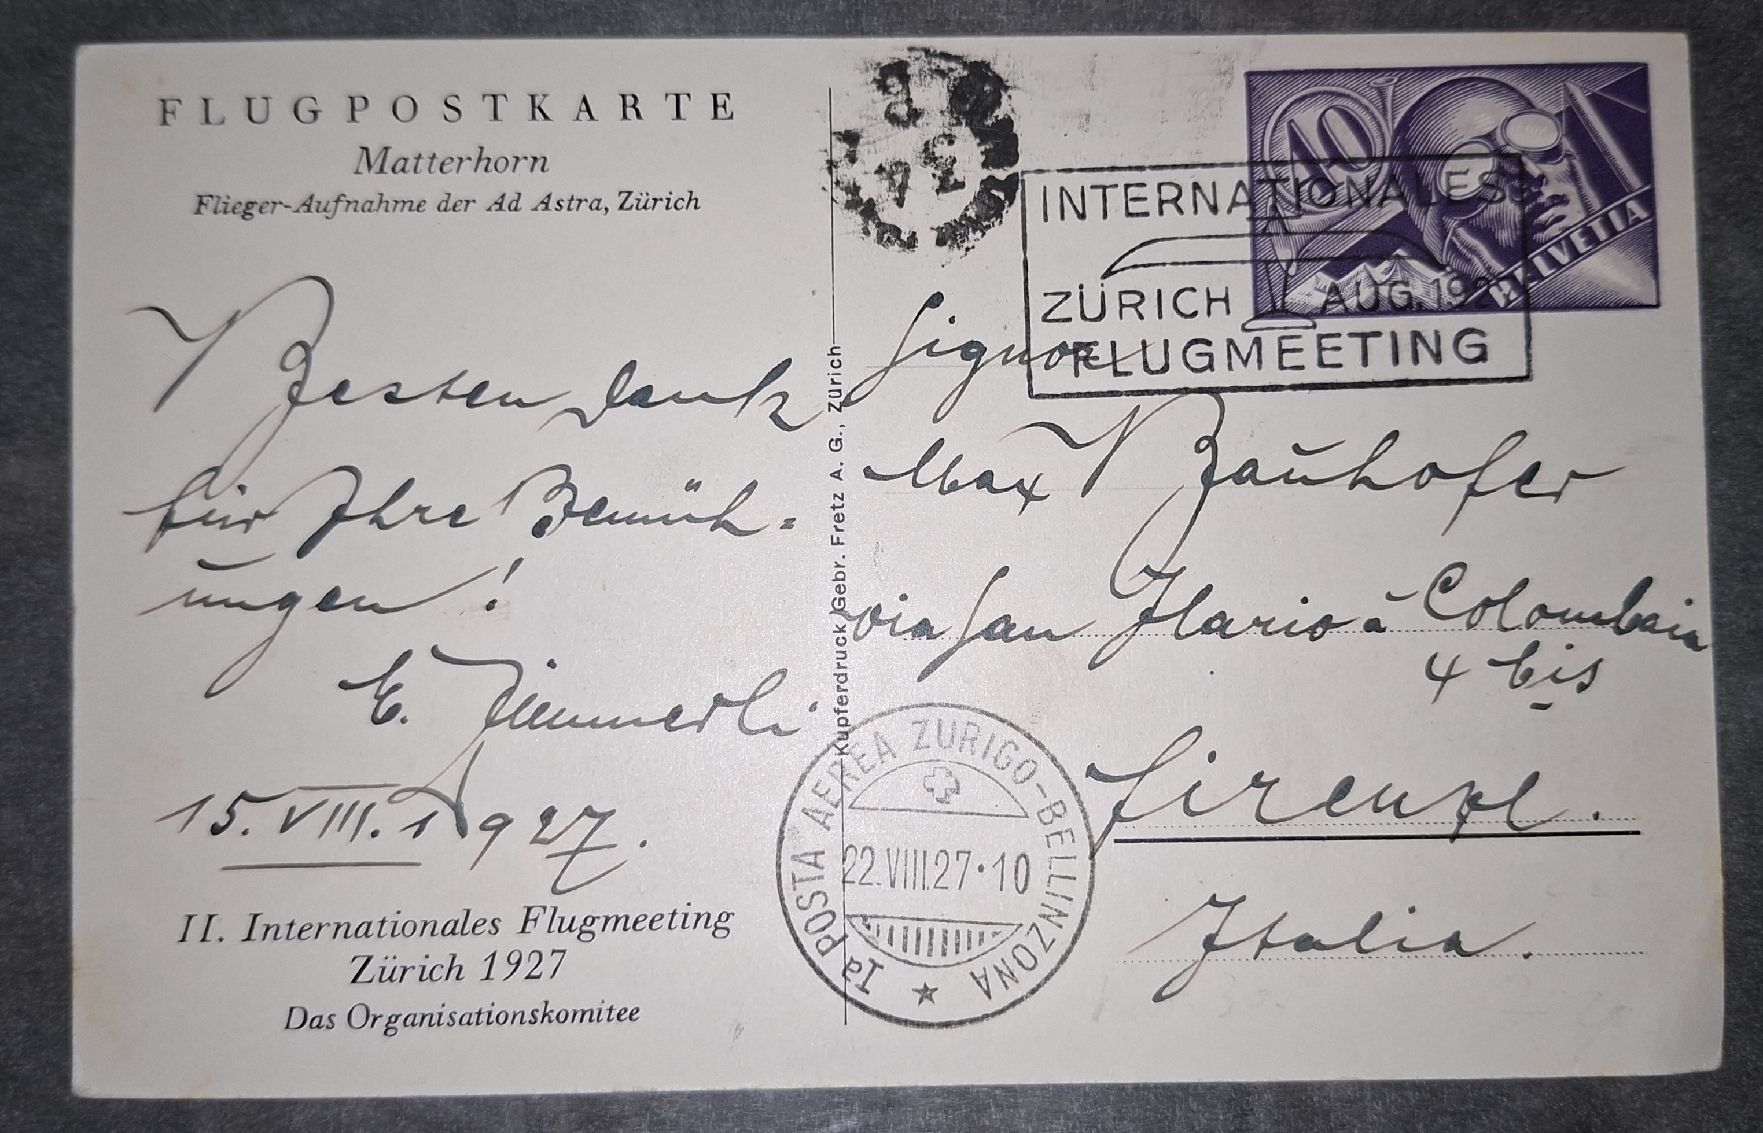 FLUGPOSTKARTE
Matterhorn
Flieger-Aufnahme der Ad Astra, Zürich
Besten Dank
für Ihre Bemüh-
ungen!
E. Zimmerli
15. VIII. 1927.
II. Internationales Flugmeeting
Zürich 1927
Das Organisationskomitee
Kupferdruck Gebr. Fretz A. G., Zürich
40
HELVETIA
INTERNATIONALES
ZÜRICH AUG.
FLUGMEETING
Signor
Max Bauhofer
via San Ilario à Colombaia
4 bis
Firenze.
Italia.
Ia POSTA AEREA ZURIGO-BELLINZONA
22.VIII.27·10